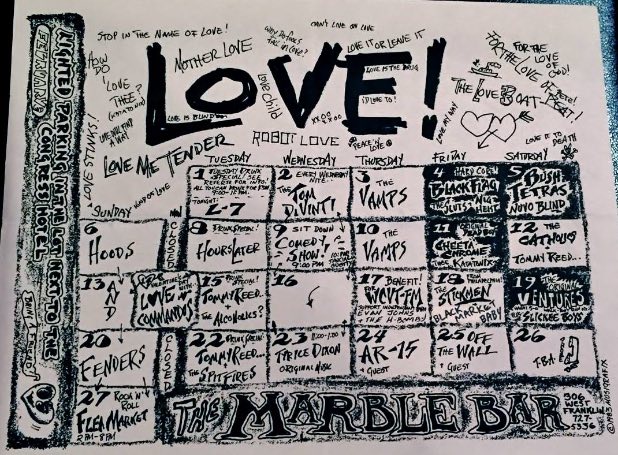 STOP IN THE NAME OF LOVE!
CAN'T LIVE OR LIVE
HOW DO
'LOVE THEE?
NOTHER LOVE
WHY DO FOOLS FALL IN LOVE?
LOVE IT OR LEAVE IT
LOVE IS THE DRUG
I'D LOVE TO!
FOR THE LOVE OF
FOR THE LOVE OF GOD!
THE LOVE BOAT
LOVE!
LOVE CHILD
LOVE IS BLIND
XXOO
LOVE STINKS!
LOVE ME TENDER
ROBOT LOVE
PEACE 'N'
LOVE IT TO DEATH
LIGHTED PARKING IN THE LOT NEXT TO THE
CONGRESS HOTEL
SUNDAY
TUESDAY
WEDNESDAY
THURSDAY
FRIDAY
SATURDAY
1 TUESDAY DRINK SPECIAL!
TONIGHT:
L-7
2 EVERY WEDNESDAY NITE-
THE TOM DIVINTI
3 THE VAMPS
4 HARD CORE!
BLACK FLAG
5 BUSH TETRAS
NOYO BLIND
6 HOODS
CLOSED
8 DRINK SPECIAL!
HOURS LATER
9 SIT DOWN
COMEDY SHOW!
9:00 PM
10 THE VAMPS
11
CHEETAH CHROME
THE KATATONICS
12 THE CATHOLICS
TOMMY REED...
13 AND
VALENTINE'S
LOVE COMMANDOS
15 DRINK SPECIAL!
TOMMY REED...
THE ALCOHOLICS?
16
17 BENEFIT!
WCVT-FM
EVAN JOHNS
+ THE H-BOMBS
18 FROM PHILADELPHIA!
THE STICKMEN
BLACK MARKET BABY
19 THE ORIGINAL
VENTURES
THE SLICKEE BOYS
20 FENDERS
CLOSED
22 DRINK SPECIAL!
TOMMY REED...
THE SPITFIRES
23
PRICE DIXON
ORIGINAL MUSIC
24 AR-15
+ GUEST
25 OFF THE WALL
+ GUEST
26
T.B.A.
27 ROCK 'N' ROLL
FLEA MARKET
2 PM-8 PM
THE MARBLE BAR
306 WEST FRANKLIN
727-5336